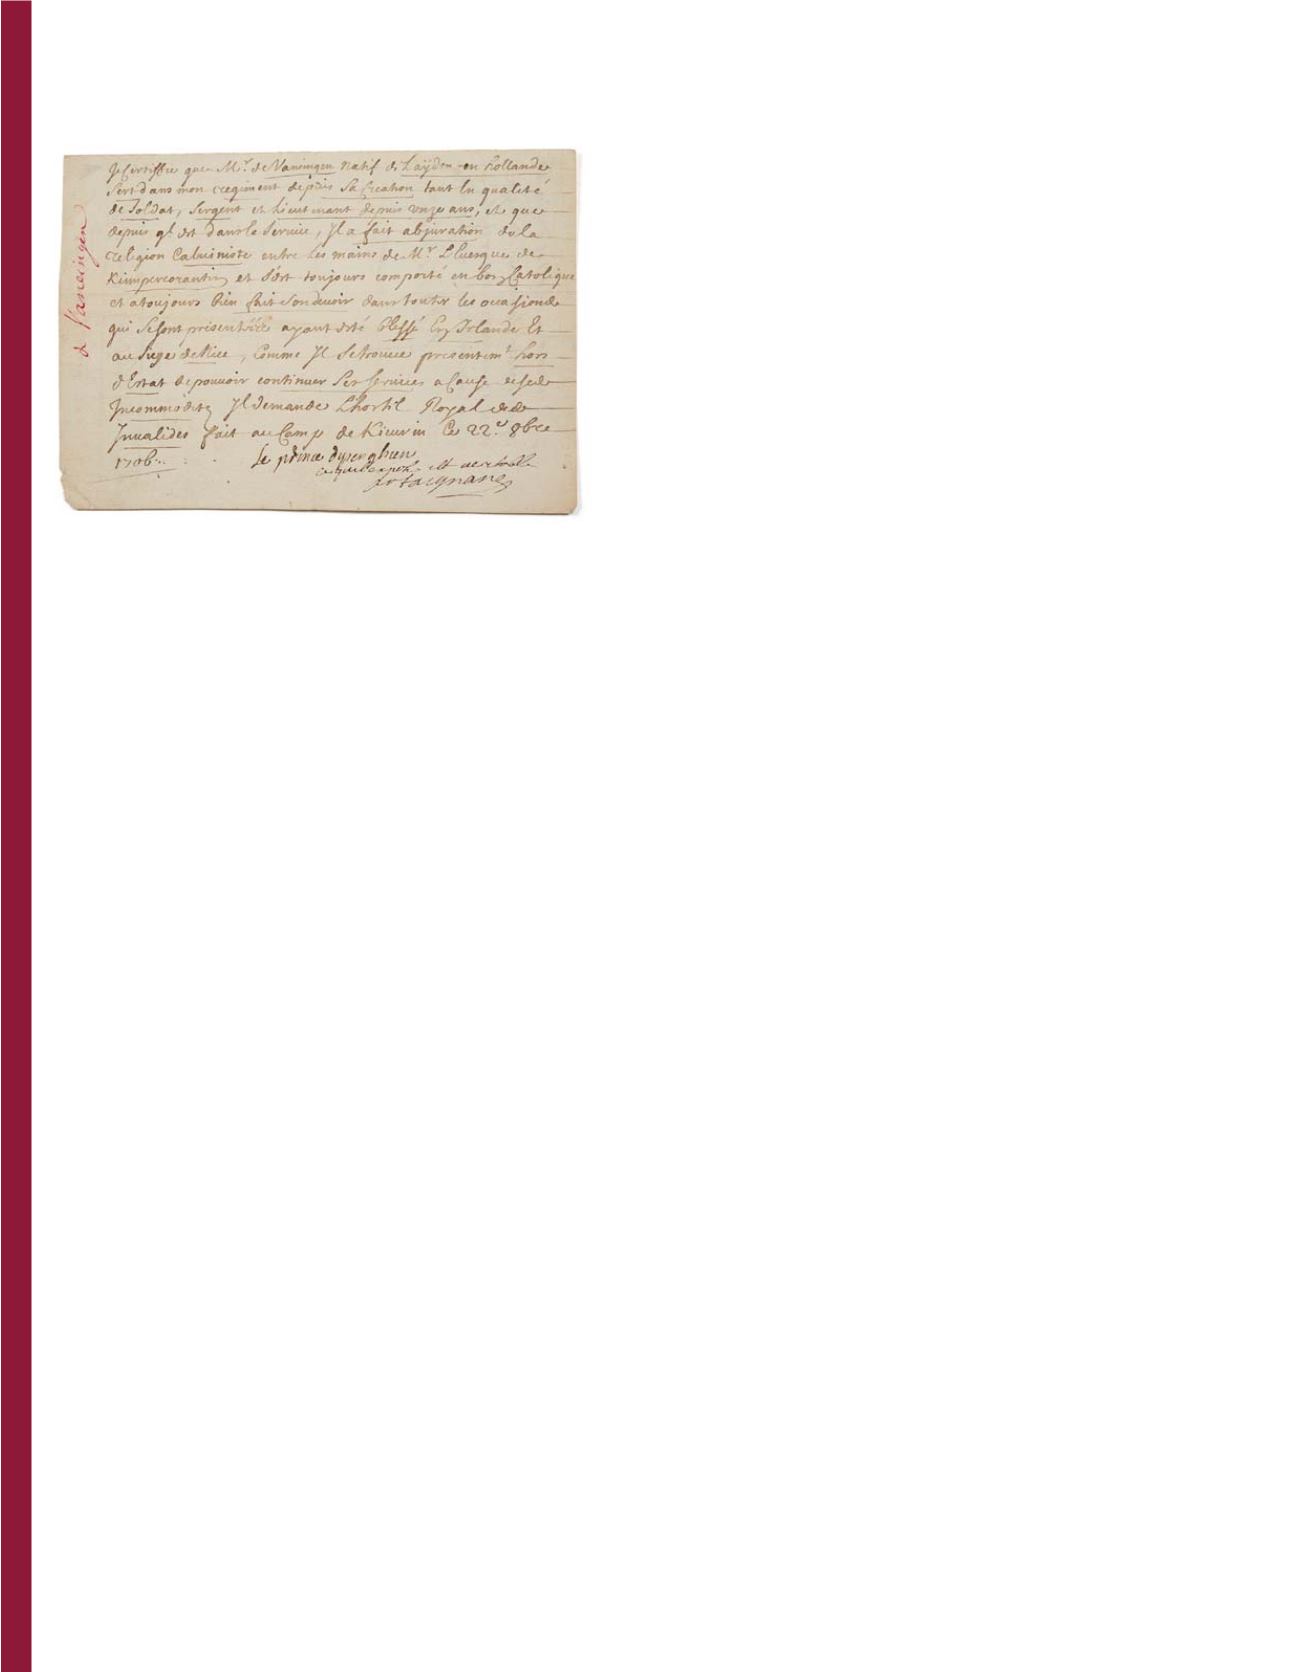 Je Certiffie que Mr. de Vaneingen natif de Layden en hollande
Sert dans mon regiment depuis Sa Creation tant En qualité
de Soldat, Sergent et Lieutenant depuis unze ans, et que
depuis ql. est dans le Service, Jl a fait abjuration de la
religion Caluiniste entre Les mains de Mr. L'Euesque de
Kimpercorantin et s'est toujours comporté en bon Catolique
et a toujours bien fait Son deuoir dans toutes les occasions
qui Se sont presentées ayant esté blessé En Irlande Et
au Siege de Nice, Comme Jl Se trouue presentemt. hors
d'Estat de pouuoir continuer Ses Seruices a Cause de Ses
Jncommodités Jl demande L'hostel Royal des
Jnualides fait au Camp de Kieurin Ce 22e. 8bre
1706.
Le prince dysenghien
est
artaignan
de Vaneingen